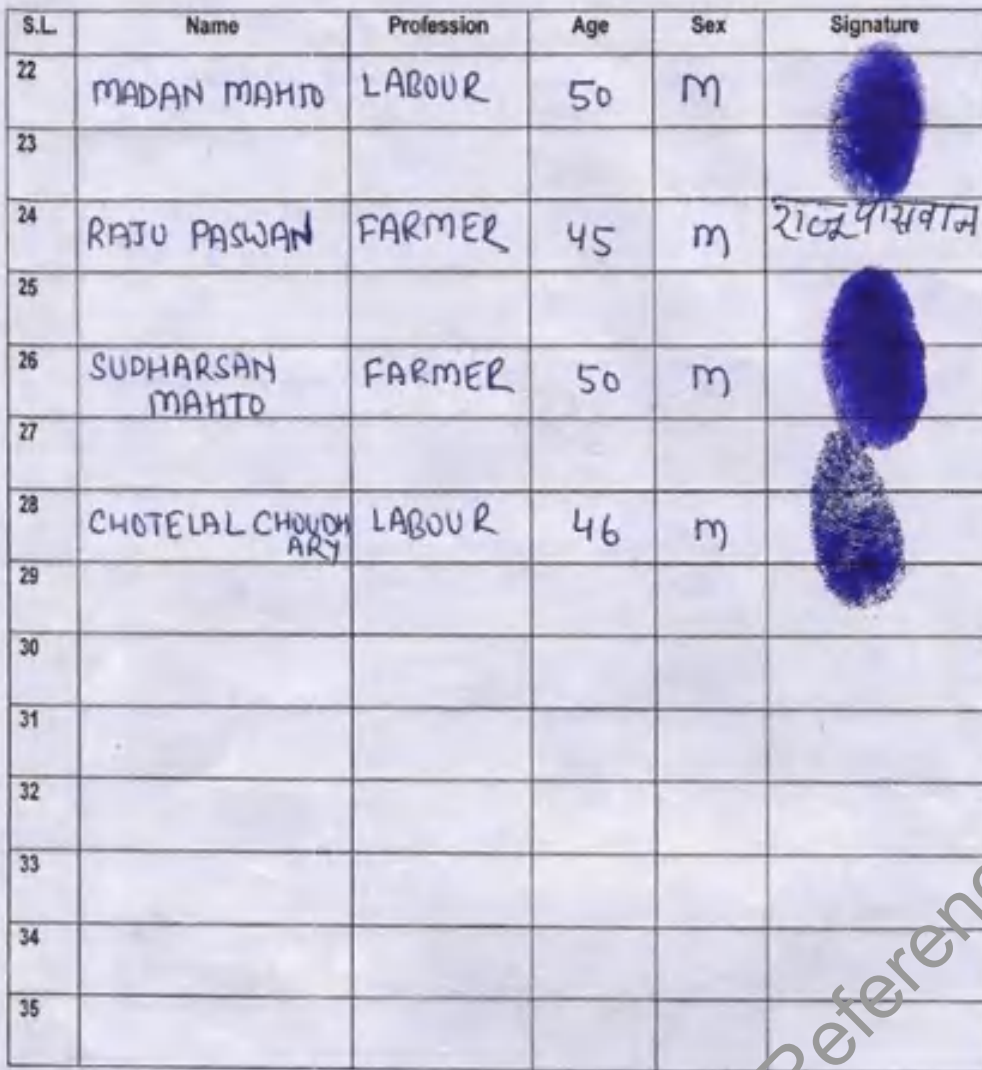 S.L. Name Profession Age Sex Signature
22 MADAN MAHTO LABOUR 50 M
23
24 RAJU PASWAN FARMER 45 M राजू पासवान
25
26 SUDHARSAN FARMER 50 M
MAHTO
27
28 CHOTELAL CHOUDH LABOUR 46 M
ARY
29
30
31
32
33
34
35